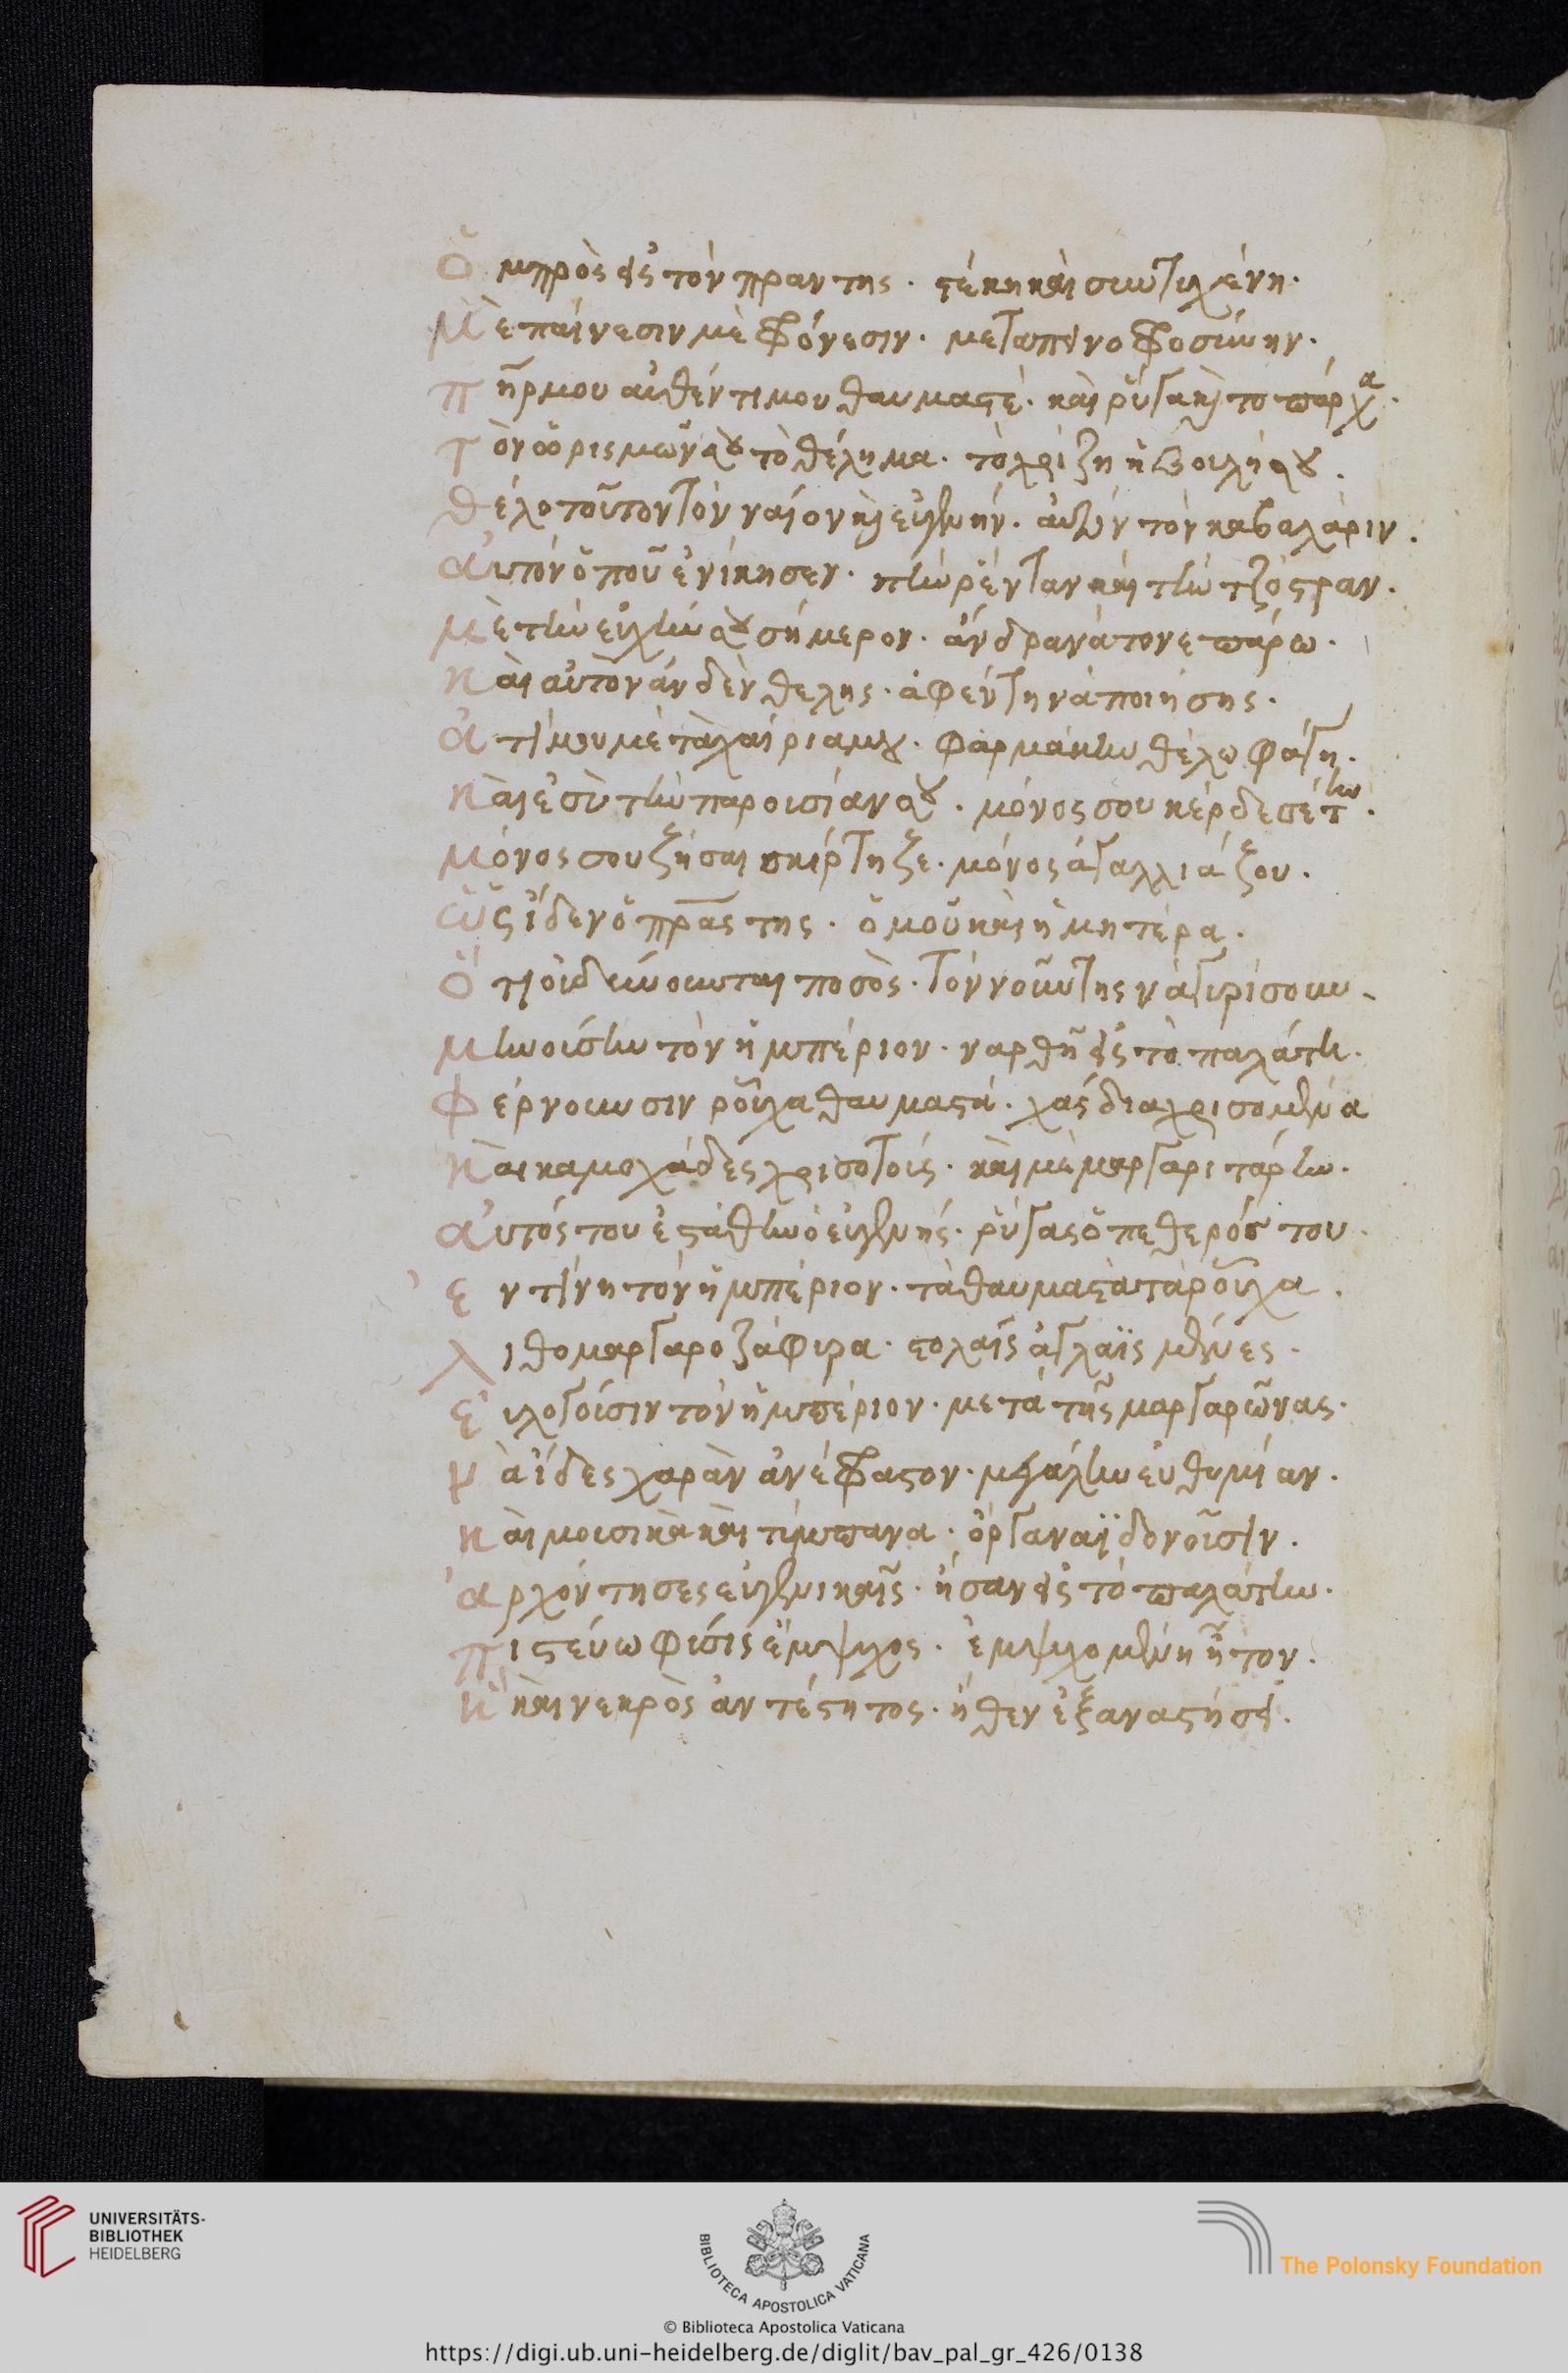 Ὄ μπρὸς εἰς τὸν πραν της. στέκη καὶ συντυχένη.
Μὲ επαίνεσιν μὲ φρόνεσιν. με ταπινοφροσύνην.
πῆρ μου αὐθέντι μου θαυμαστέ. καὶ ρύγα καὶ το παρχα.
Τὸν ὁρισμῶν σου τὸ θέλημα. τὸ χρίζη ἡ βουλή σου.
θέλο τοῦτον τὸν νέον καὶ εὐγενήν. αὐτὸν τὸν καβαλάριν.
αὐτὸν ὁποῦ ἐνίκησεν. τὴν ρένταν καὶ τὴν τζόστραν.
μὲ τὴν εὐχήν σου σήμερον. ἄνδρα νὰ τονε πάρω.
Καὶ αὐτὸν ἂν δὲν θελης. ἀφέντη νὰ ποιήσης.
ἀτή μου μὲ τὰ χαίρια μου. φαρμάκιν θέλω φάγη.
Καὶ ἐσὺ τὴν παρουσίαν σου. μόνος σου κέρδεσέ την.
Μόνος σου ζῆσαι σκίρτηζε. μόνος ἀγαλλιάζου.
ὡς ἴδεν ὁ πρας της. ὁμοῦ καὶ ἡ μητέρα.
Ὅτι οὐ δύνουνται ποσὸς. τὸν νοῦν της νὰ γυρίσουν.
μινοῦσιν τὸν ἡμπέριον. ναρθῆ εἰς τὸ παλάτιν.
Φέρνουσιν ροῦχα θαυμαστά. χάσδια χρισομένα
Καὶ καμουχάδες χρισοτοίς. καὶ μὲ μαργαριτάριν.
αὐτός του ἐστάθην ὁ εὐγενής. ρύγας ὁ πεθερός του.
εντίνη τὸν ἡμπέριον. τὰ θαυμαστὰ τὰ ροῦχα.
λιθομαργαροζάφιρα. στολαῖς ἀγλαϊσμένες.
εὐλογοῦσιν τὸν ἡμπέριον. μετὰ τῆς μαργαρῶνας.
Νὰ ἴδες χαρὰν ἀνέφραστον. μεγάλην εὐθυμίαν.
Καὶ μουσικὰ καὶ τίμπανα. ὄργανα ἡδονοῦσιν.
ἀρχόντησες εὐγενικαῖς. ἦσαν εἰς τὸ παλάτιν.
πιστεύω φύσις ἔμψυχος. ἐμψυχομένη ἦτον.
Κ καὶ νεκρὸς ἀντέστητος. ἦθεν ἐξαναστήσει.
UNIVERSITÄTS-
BIBLIOTHEK
HEIDELBERG
BIBLIOTECA APOSTOLICA VATICANA
The Polonsky Foundation
© Biblioteca Apostolica Vaticana
https://digi.ub.uni-heidelberg.de/diglit/bav_pal_gr_426/0138